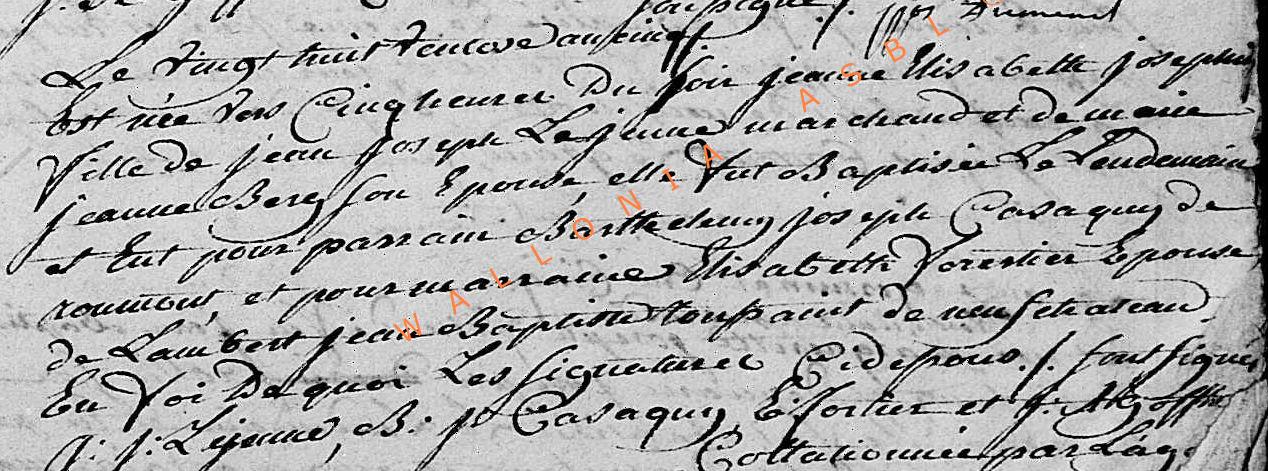 Le vingt huit ventose an cinq
Est née vers Cinq heures Du soir jeanne Elisabette josephe
fille de jean joseph Lejeune marchand et de marie
jeanne Berg son Epouse, elle fut Baptisée Le Lendemain
et Eut pour parrain Barthelemy joseph Casaquy de
roumont, et pour marraine Elisabette forestier Epouse
de Lambert jean Baptiste toussaint de neufchateau
En foi De quoi Les signatures Ci dessous /. sont signés
j: j: Lejeune, B: jh Casaquy, E: fortier et j:
Collationnée par L'ag
WALLONIA ASBL